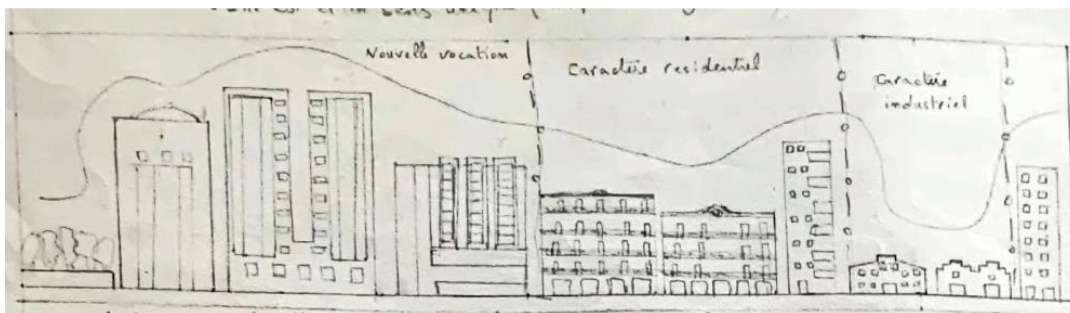 Nouvelle vocation
Caractère residentiel
Caractère
industriel